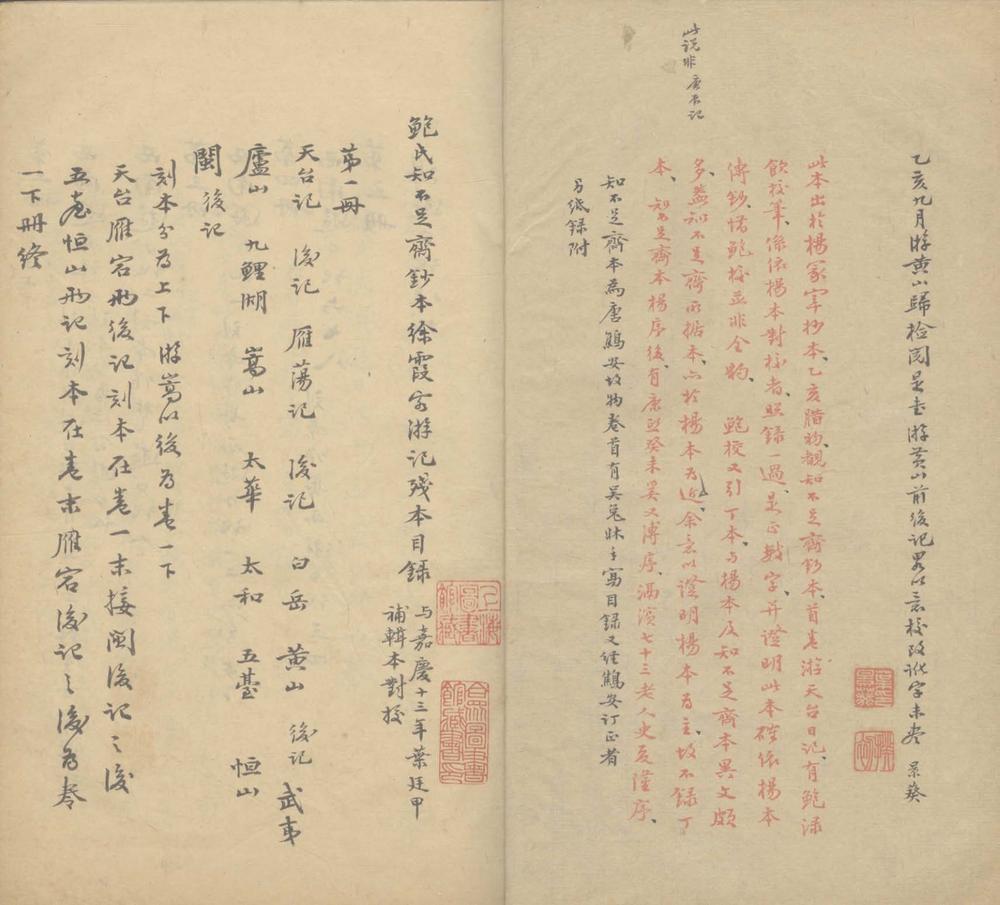 乙亥九月游黄山歸檢閱是書游黄山前後記略以意校改訛字未盡 景葵
此本出於楊冢宰抄本乙亥腊初覯知不足齋鈔本首卷游天台日記有鮑淥
飲校筆係依楊本對校者照錄一過是正數字并證明此本確依楊本
傳鈔惜鮑校並非全豹 鮑校又引丁本与楊本及知不足齋本異文頗
多蓋知不足齋所據本亦於楊本為近余意以證明楊本為主故不錄丁
本知不足齋本楊序後有康熙癸未奚又溥序滆濱七十三老人史夏隆序
知不足齋本為唐鷦安故物卷首有吴兔牀手寫目録又經鷦安訂正者
另紙録附
此説非 唐書記
鮑氏知不足齋鈔本徐霞客游記殘本目録
与嘉慶十三年葉廷甲
補輯本對校
苐一冊
天台記 後記 雁蕩記 後記 白岳 黄山 後記 武夷
廬山 九鯉湖 嵩山 太華 太和 五臺 恒山
閩後記
刻本分為上下 游嵩以後為卷一下
天台雁宕前後記刻本在卷一末接閩後記之後
五臺恒山兩記刻本在卷末雁宕後記之後為卷
一下冊終
上海圖書館藏